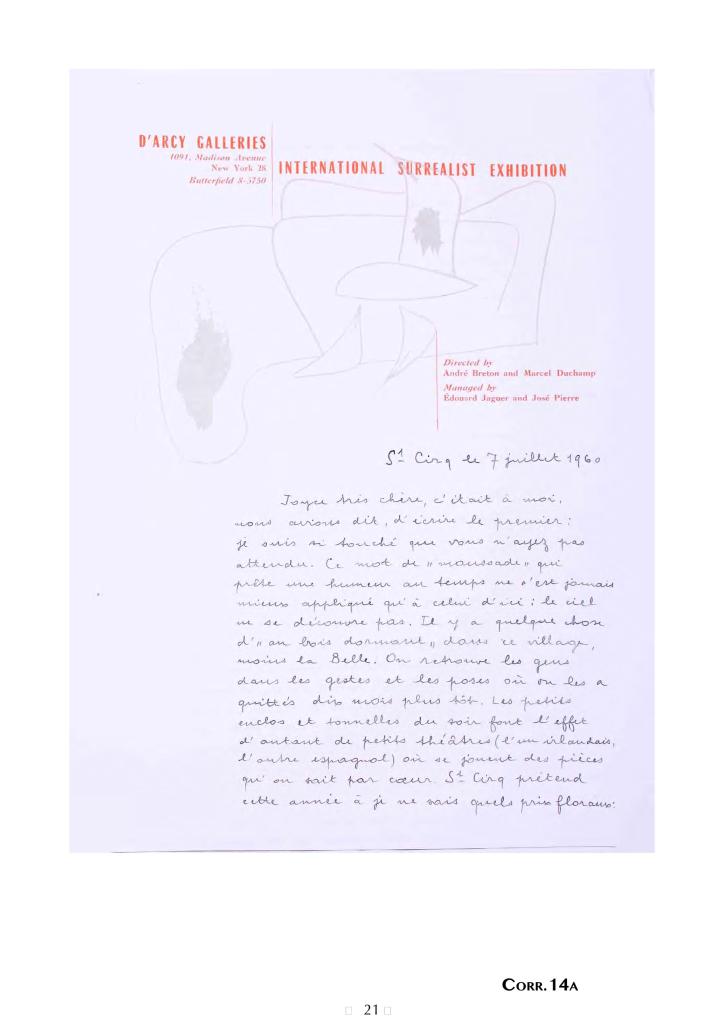 D'ARCY GALLERIES
1091, Madison Avenue
New York 28
Butterfield 8-5750
INTERNATIONAL SURREALIST EXHIBITION
Directed by
André Breton and Marcel Duchamp
Managed by
Édouard Jaguer and José Pierre
St Cirq le 7 juillet 1960
Joyce très chère, c'était à moi,
nous avions dit, d'écrire le premier :
je suis si touché que vous n'ayez pas
attendu. Ce mot de "maussade" qui
prête une humeur au temps ne s'est jamais
mieux appliqué qu'à celui d'ici : le ciel
ne se découvre pas. Il y a quelque chose
d'"au bois dormant" dans ce village,
moins la Belle. On retrouve les gens
dans les gestes et les poses où on les a
quittés dix mois plus tôt. Les petits
enclos et tonnelles du soir font l'effet
d'autant de petits théâtres (l'un irlandais,
l'autre espagnol) où se jouent des pièces
qu'on sait par cœur. St Cirq prétend
cette année à je ne sais quels prix floraux :
CORR.14A
21